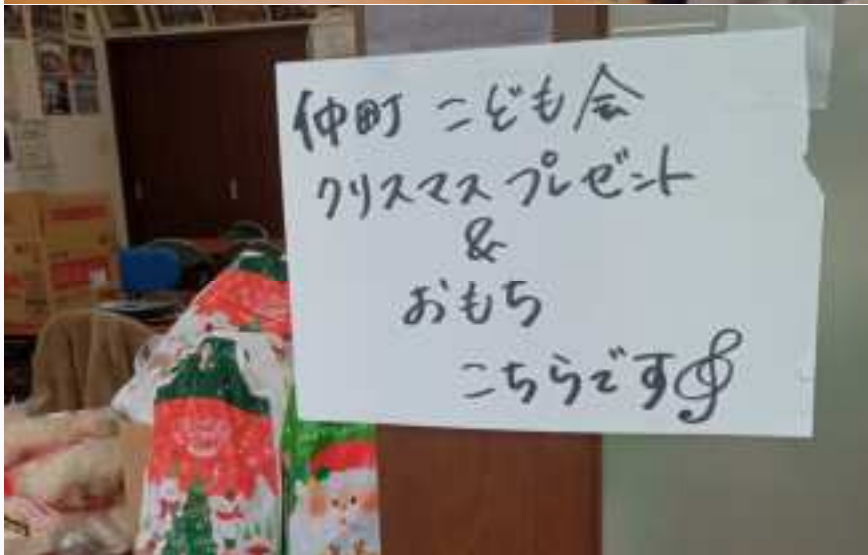 仲町 こども会
クリスマス プレゼント
&
おもち
こちらです